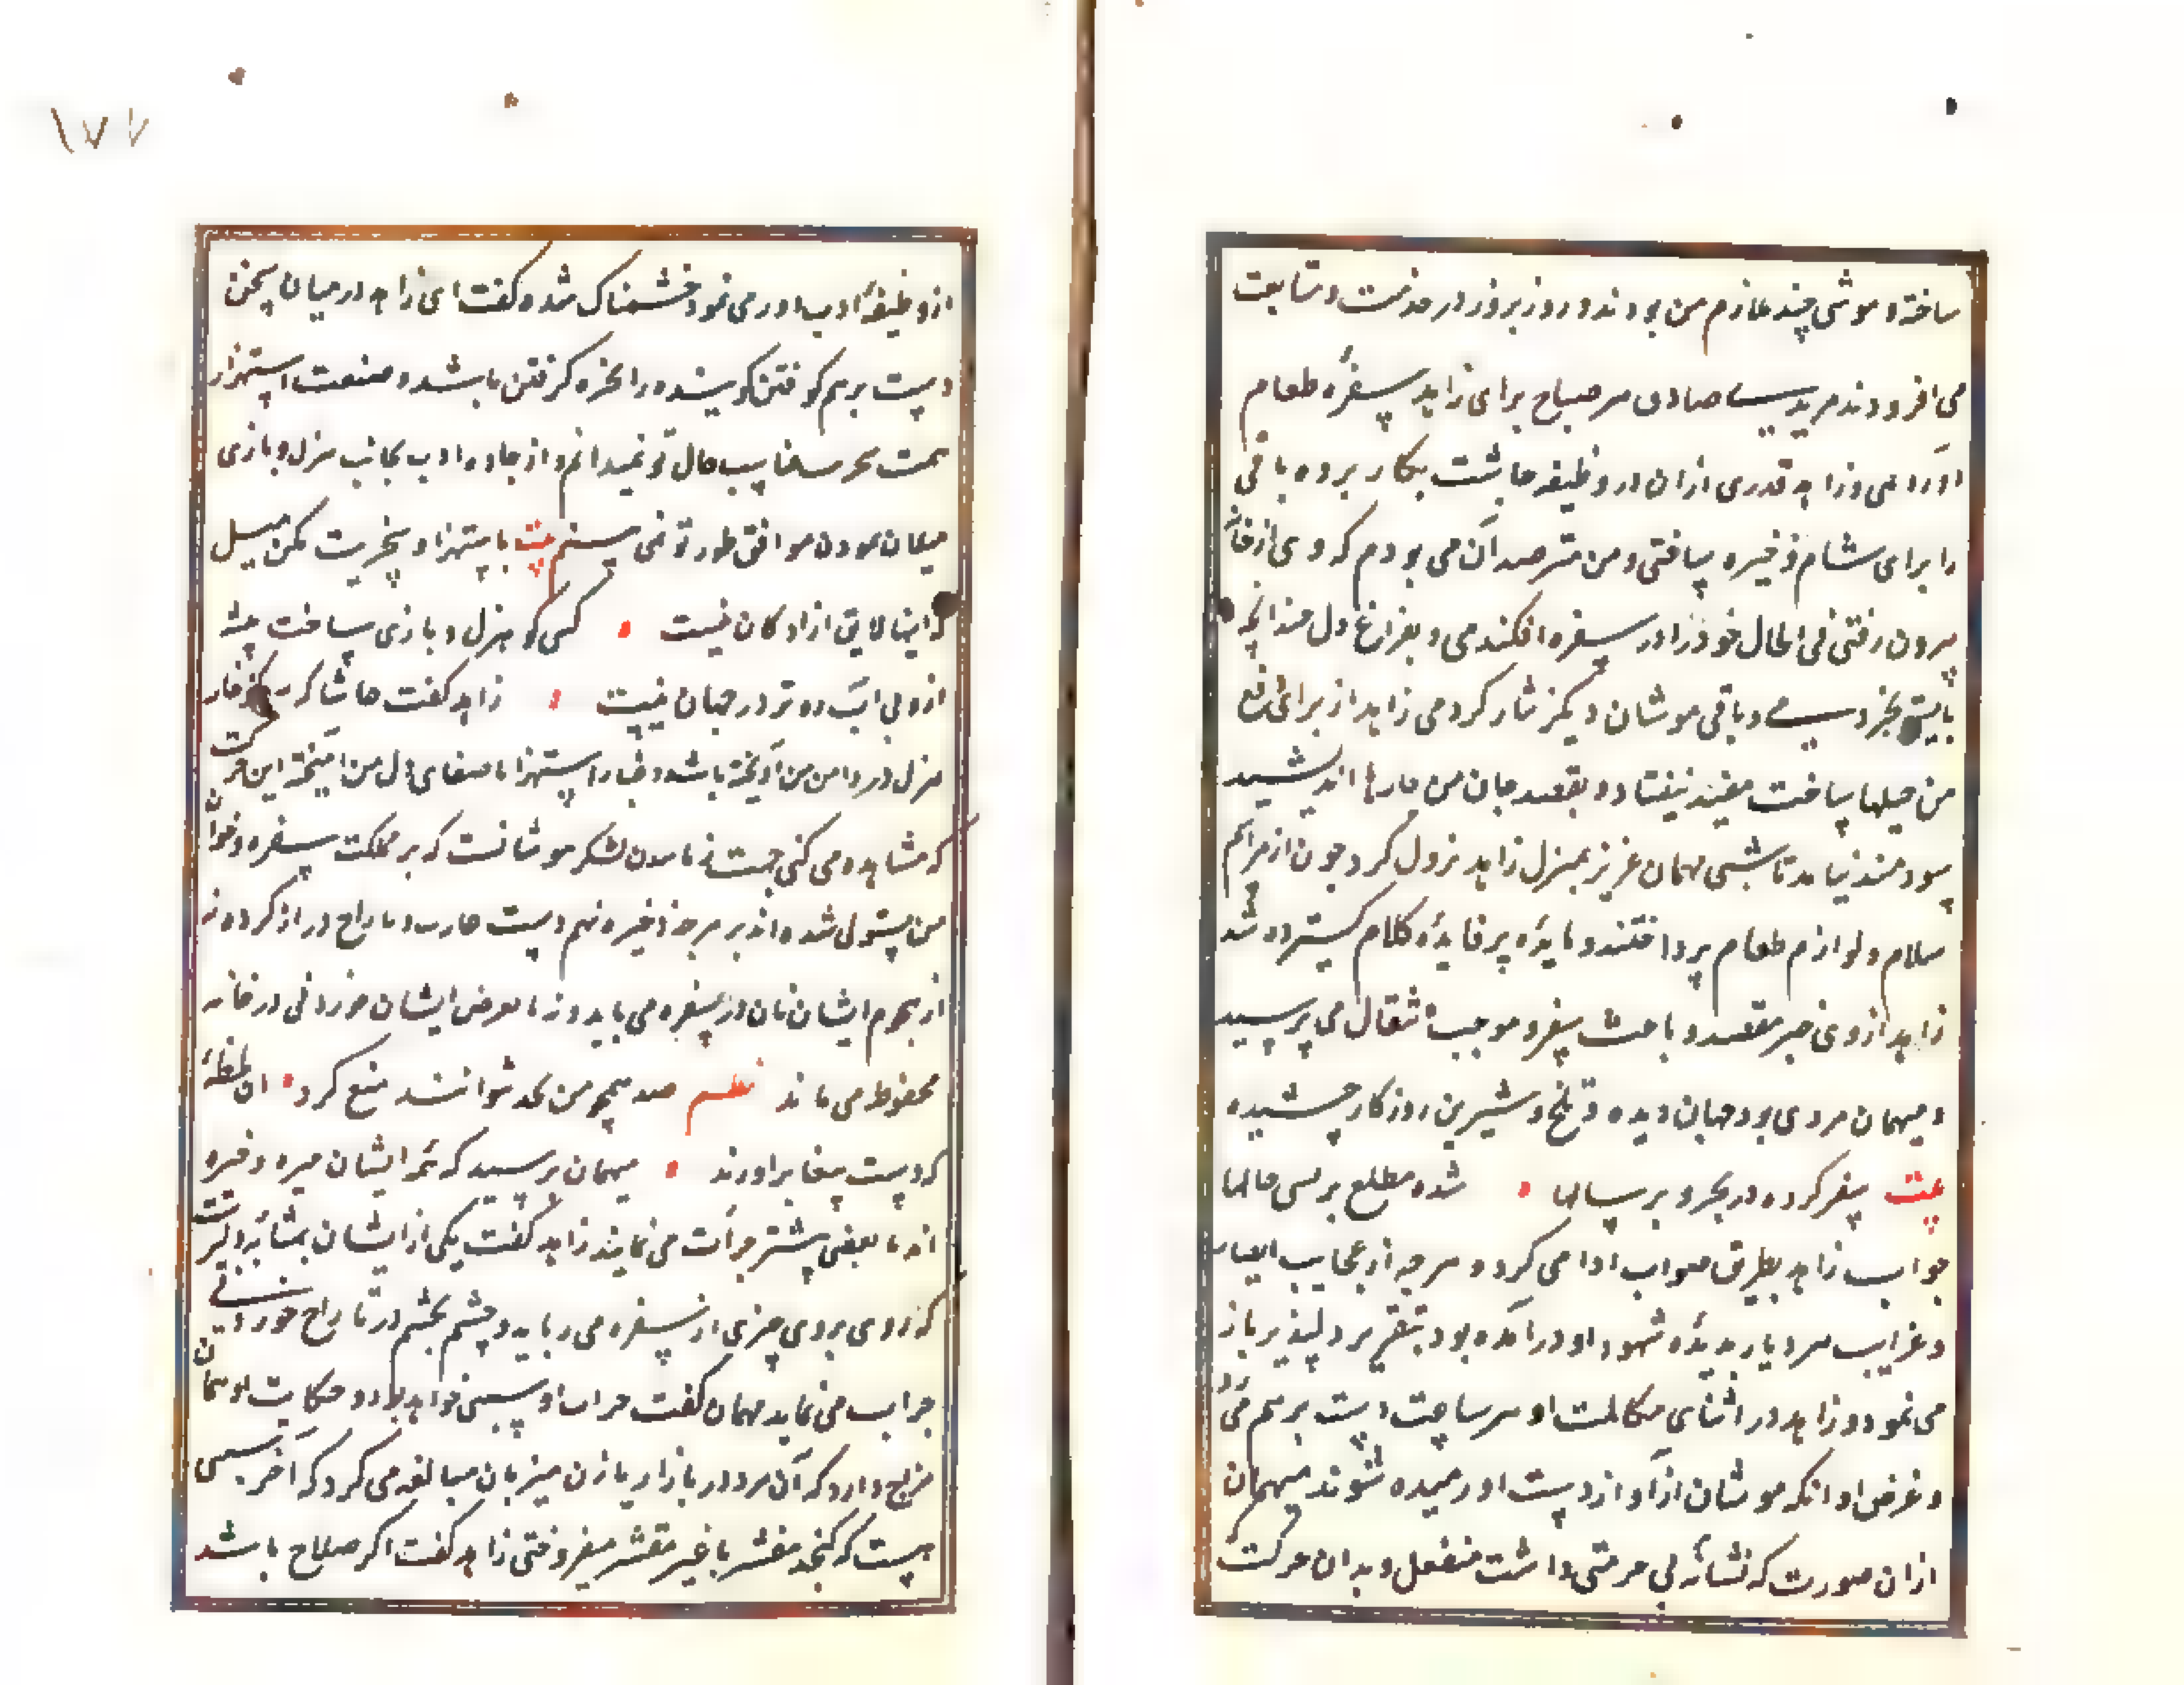 ساخته و موشی چند ملازم من بودند و روز بروز در خدمت و متابعت
می افزودند مریدی صادق هر صباح برای زاهد سفرهٔ طعام
آوردی و زاهد قدری ازان در وظیفه چاشت بکار برده باقی
را برای شام ذخیره ساختی و من مترصد آن می بودم که وی از خانه
بیرون رفتی فی الحال خود را در سفره افکندمی و بفراغ دل چندانچه
بایستی بخوردمی و باقی موشان دیگر نثار کردمی زاهد از برای دفع
من حیلها ساخت مفید نیفتاد و بقصد جان من چارها اندیشید
سودمند نیامد تا شبی مهمان عزیز بمنزل زاهد نزول کرد چون از مراسم
سلام و لوازم طعام پرداختند و مایدهٔ پر فایدهٔ کلام گسترده شد
زاهد از وی خبر مقصد و باعث سفر و موجب انتقال می پرسید
و میهمان مردی بود جهان دیده و تلخ و شیرین روزکار چشیده
بیت سفر کرده در بحر و بر سالها شده مطلع بر بسی حالها
جواب زاهد بطریق صواب ادا می کرد و هرچه از عجایب امصار
و غرایب هر دیار بدیدهٔ شهود او درآمده بود بتقریر دلپذیر باز
می نمود و زاهد در اثنای مکالمت او هر ساعت دست برهم می زد
و غرض او آنکه موشان از آواز دست او رمیده شوند میهمان
ازان صورت که نشانهٔ بی حرمتی داشت منفعل و بدان حرکت
۱۷۷
از وظیفهٔ ادب دور می نمود خشمناک شده کفت ای زاهد در میان سخن
دست برهم کوفتن کوینده را سخره کرفتن باشد و صنعت استهزا
سمت سخریه مناسب حال تو نمیدانم و از جاده ادب بجانب هزل و بازی
میلان نمودن موافق طور تو نمی بینم بیت باستهزا و سخریت مکن میل
که اینها لایق ازادکان نیست کسی کو هزل و بازی ساخت پیشه
ازو بی آب رو تر در جهان نیست زاهد کفت حاشا که هرکز خار
هزل در دامن من آویخته باشد و غبار استهزا با صفای دل من آمیخته این حرکت
که مشاهده می کنی جهت رماندن لشکر موشانست که بر مملکت سفره و خوان
من مستولی شده اند بر هرچه ذخیره نهم دست غارت و تاراج دراز کرده نه
از هجوم ایشان نان در سفره می یابد و نه از تعرض ایشان خوردنی در خانه
محفوظ می ماند نظم صد همچو من بجد نتوانند منع کرد ان لحظهٔ
که دست بیغما برآورند میهمان پرسید که همه ایشان چیره و خیره
اند یا بعضی بیشتر جرأت می نمایند زاهد کفت یکی از ایشان بمثابهٔ دلیرست
که روی بروی چیزی از سفره می رباید و چشم بچشم در تاراج خوردنی
جرأت می نماید مهمان کفت جرأت او سببی خواهد بود و حکایت او همان
مزاج دارد که آن مرد در بازار با زن میزبان مبالغه می کرد که آخر سببی
هست که کنجد مقشر با غیر مقشر میفروختی زاهد کفت اکر صلاح باشد